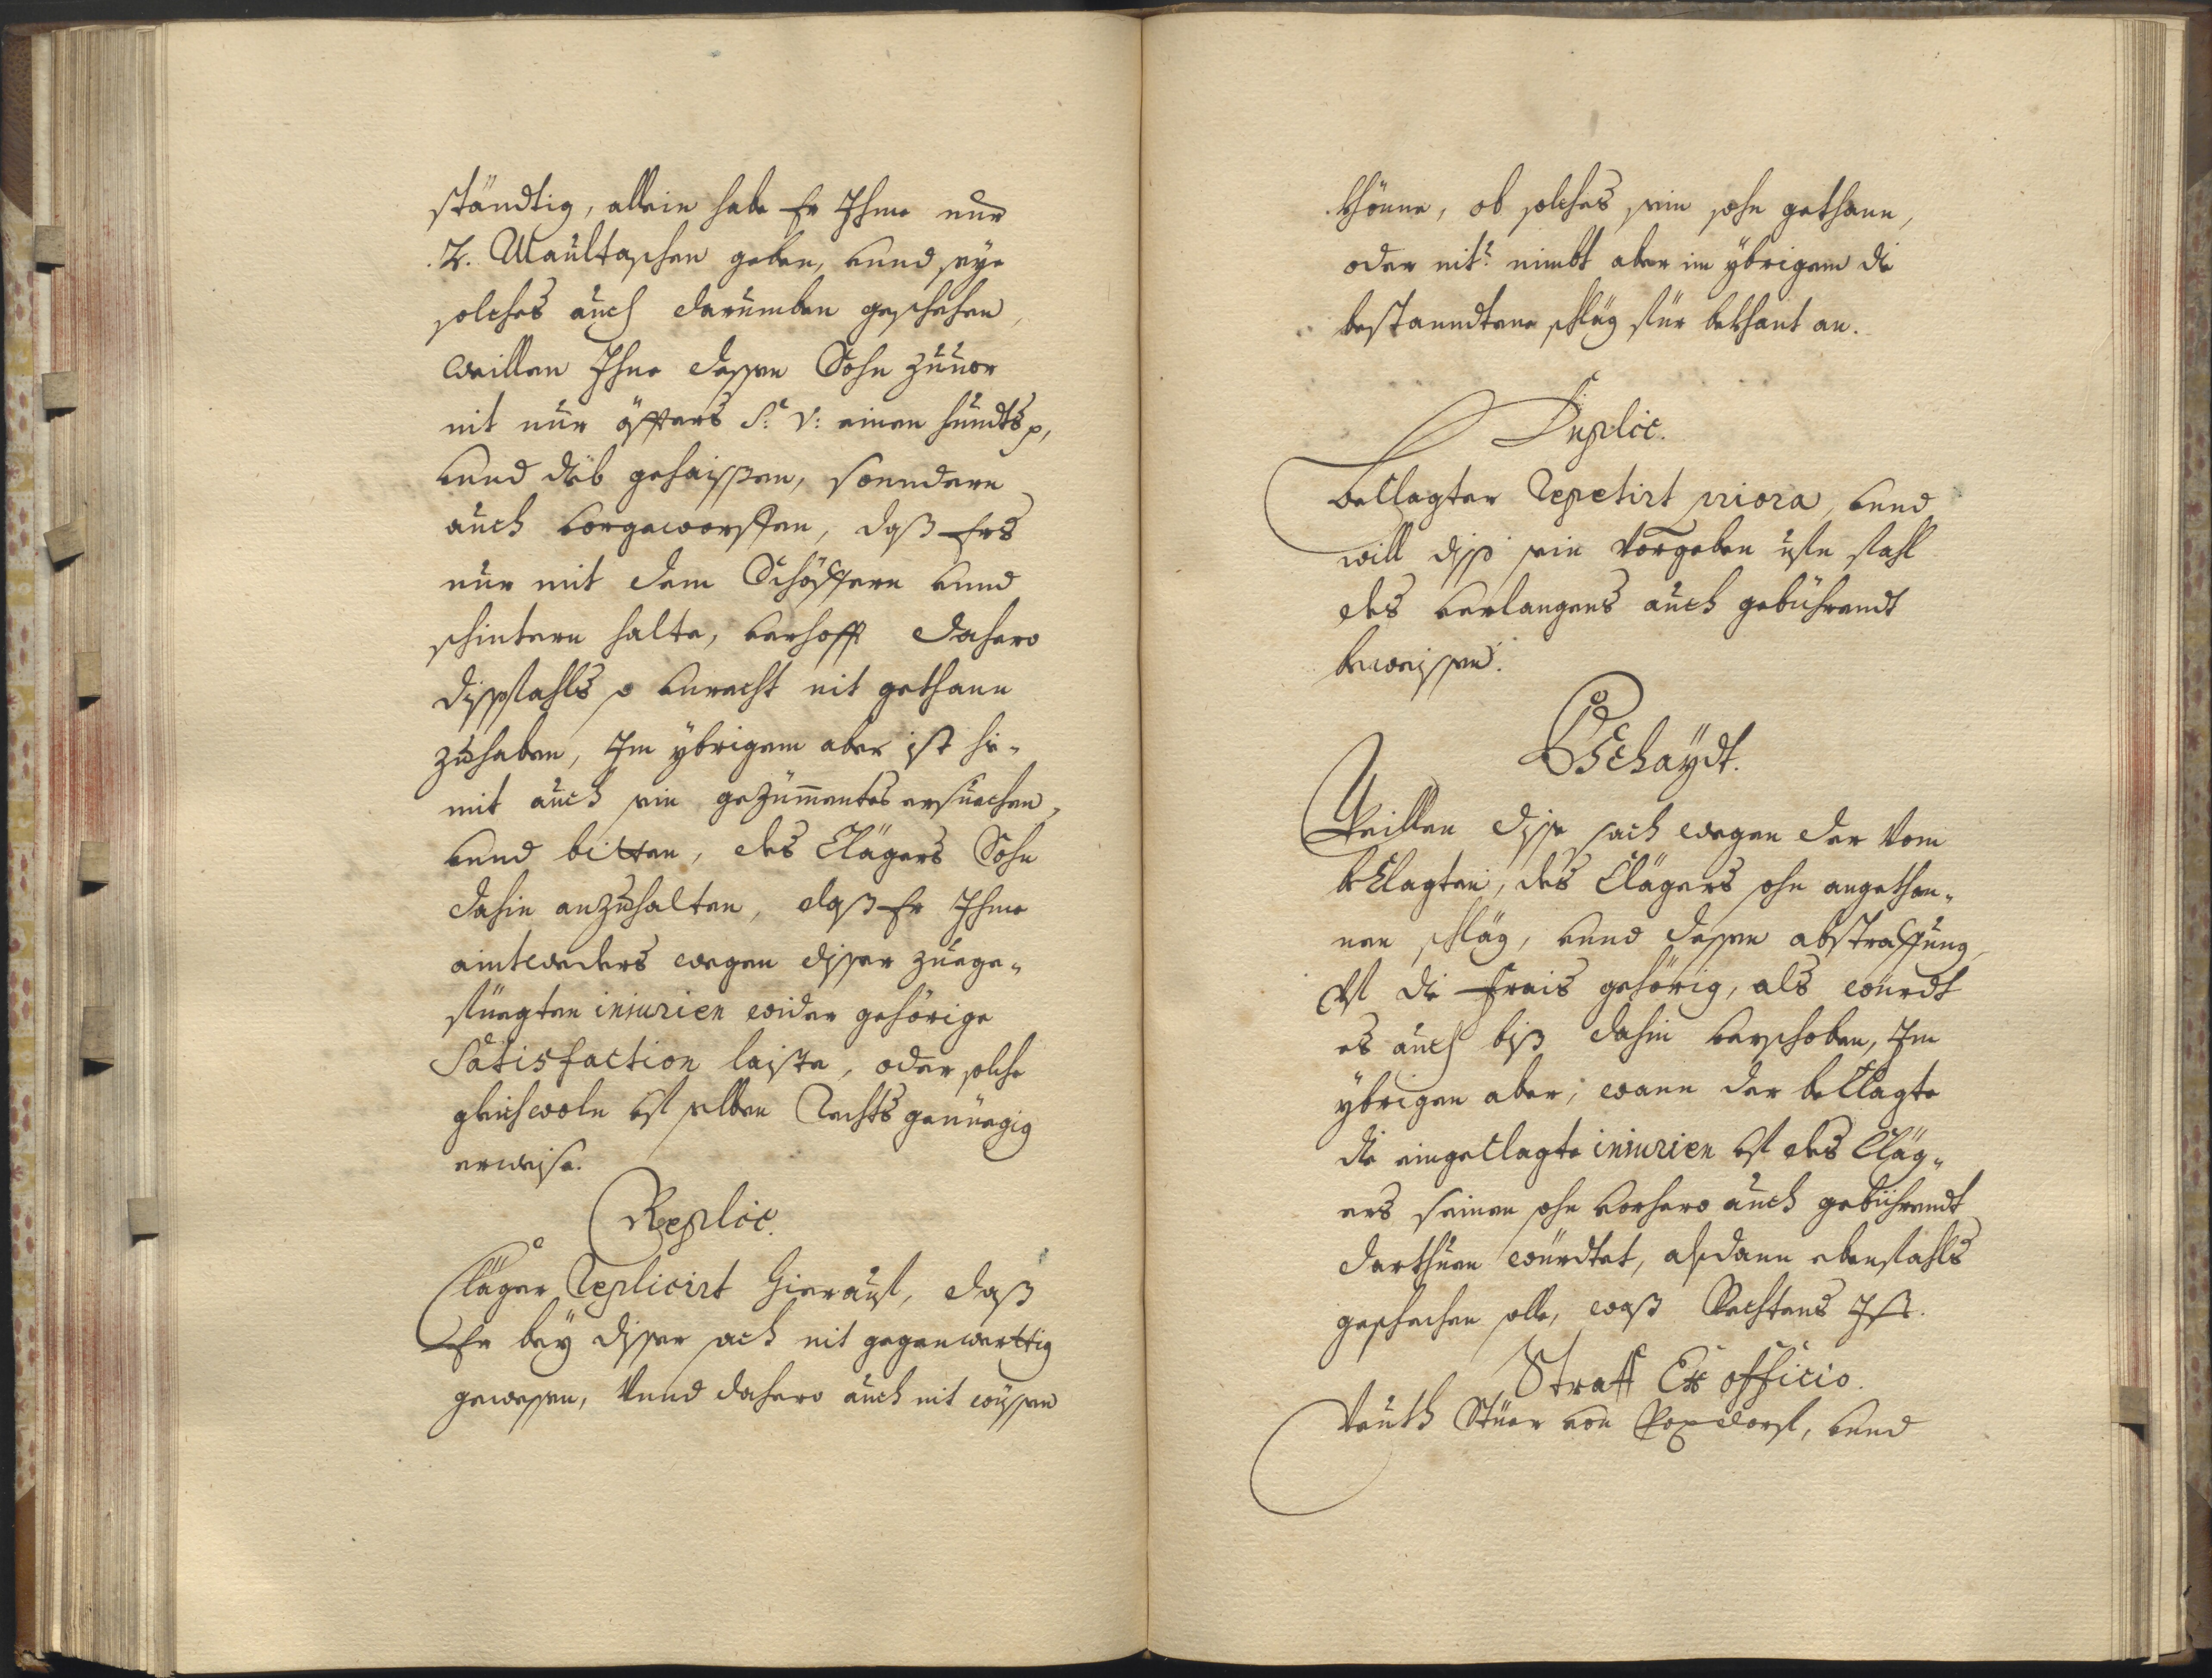 ständtig, allein habe Er Ihme nur
.2. Maultaschen geben, vnnd seye
solches auch darumben geschehen,
weillen Ihne dessen Sohn zuuor
nit nur öffters S: V: einen hundts p,
vnnd dieb gehaissen, sonndern
auch vorgeworffen, daß Ers
nur mit dem Schöffern vnnd
schintern halte, verhofft dahero
dissfahls so vnrecht nit gethann
zuhaben, Im ybrigem aber ist hie„
mit auch sein gezimmentes ersuechen,
vnnd bitten, des Clägers Sohn
dahin anzuhalten, daß Er Ihme
aintweders wegen disser zuege„
füegten iniurien wider gehörige
Satisfaction laiste, oder solche
gleichwoln vf selben Rechts genüegig
erweise.
Replic.
Cläger Replicirt hierauf, daß
Er bey disser sach nit gegenwerttig
gewessen, Vnnd dahero auch nit wissen
khönne, ob solches sein sohn gethann,
oder nit? nimbt aber im ybrigem die
bestanndtene schläg für bekhant an.
Duplic.
beclagter Repetirt priora, vnnd
will diß sein Vorgeben vfn fahl
des verlangens auch gebührendt
beweissen.
Bschaydt.
Weillen disse sach wegen der Vom
beklagten, des Clägers sohn angethon„
nen schläg, vnnd dessen abstraffung,
vf die Frais gehörig, als würdt
es auch biß dahin verschoben, Im
ybrigen aber, wann der beclagte
die eingeclagte iniurien vf des Cläg„
ers seinen sohn vorhero auch gebührendt
darthuen würdtet, alsdann ebenfahls
geschechen solle, waß Rechtens Ist.
Straff Ex officio.
Veith Stüer von Poxdorf, vnnd